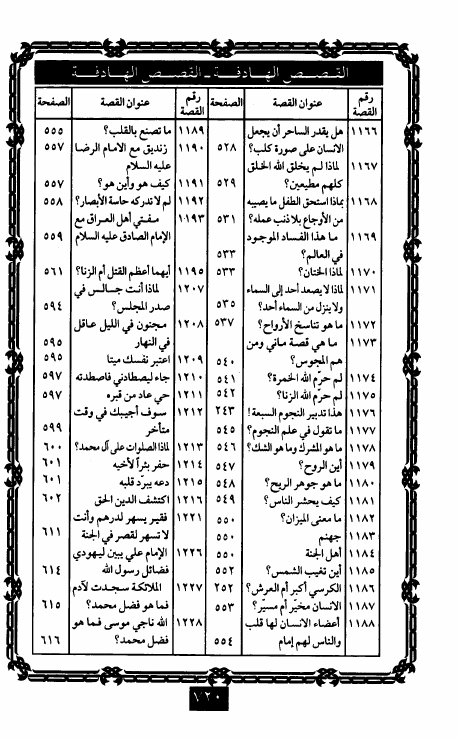 القصص الهادفة - القصص الهادفة
رقم القصة عنوان القصة الصفحة
١١٦٦ هل يقدر الساحر أن يجعل
الانسان على صورة كلب؟ ٥٢٨
١١٦٧ لماذا لم يخلق الله الخلق
كلهم مطيعين؟ ٥٢٩
١١٦٨ بماذا استحق الطفل ما يصيبه
من الأوجاع بلا ذنب عمله؟ ٥٣١
١١٦٩ ما هذا الفساد الموجود
في العالم؟ ٥٣٣
١١٧٠ لماذا الختان؟ ٥٣٣
١١٧١ لماذا لا يصعد أحد إلى السماء
ولا ينزل من السماء أحد؟ ٥٣٥
١١٧٢ ما هو تناسخ الأرواح؟ ٥٣٧
١١٧٣ ما هي قصة ماني ومن
هم المجوس؟ ٥٤٠
١١٧٤ لم حرّم الله الخمرة؟ ٥٤١
١١٧٥ لم حرّم الله الزنا؟ ٥٤٢
١١٧٦ هذا تدبير النجوم السبعة! ٢٤٣
١١٧٧ ما تقول في علم النجوم؟ ٥٤٥
١١٧٨ ما هو المشرك وما هو الشك؟ ٥٤٦
١١٧٩ أين الروح؟ ٥٤٧
١١٨٠ ما هو جوهر الريح؟ ٥٤٨
١١٨١ كيف يحشر الناس؟ ٥٤٩
١١٨٢ ما معنى الميزان؟ ٥٥٠
١١٨٣ جهنم ٥٥٠
١١٨٤ أهل الجنة ٥٥٠
١١٨٥ أين تغيب الشمس؟ ٥٥٢
١١٨٦ الكرسي أكبر أم العرش؟ ٢٥٢
١١٨٧ الانسان مخيّر أم مسيّر؟ ٥٥٣
١١٨٨ أعضاء الانسان لها قلب
والناس لهم إمام ٥٥٤
رقم القصة عنوان القصة الصفحة
١١٨٩ ما تصنع بالقلب؟ ٥٥٥
١١٩٠ زنديق مع الامام الرضا ٥٥٧
عليه السلام
١١٩١ كيف هو وأين هو؟ ٥٥٧
١١٩٢ لم لا تدركه حاسة الأبصار؟ ٥٥٨
١١٩٣ مفتي أهل العراق مع
الإمام الصادق عليه السلام ٥٥٩
١١٩٥ أيهما أعظم القتل أم الزنا؟ ٥٦١
١٢٠٧ لماذا أنت جالس في
صدر المجلس؟ ٥٩٤
١٢٠٨ مجنون في الليل عاقل
في النهار ٥٩٥
١٢٠٩ اعتبر نفسك ميتا ٥٩٥
١٢١٠ جاء ليصطادني فاصطدته ٥٩٧
١٢١١ حي عاد من قبره ٥٩٧
١٢١٢ سوف أجيبك في وقت
متأخر ٥٩٩
١٢١٣ لماذا الصلوات على آل محمد؟ ٦٠٠
١٢١٤ حفر بئراً لأخيه ٦٠١
١٢١٥ دعه يبرّد قلبه ٦٠١
١٢١٦ اكتشف الدين الحق ٦٠٢
١٢٢١ فقير يسهر لدرهم وأنت
لا تسهر لقصر في الجنة ٦١١
١٢٢٦ الإمام علي يبين ليهودي
فضائل رسول الله ٦١٤
١٢٢٧ الملائكة سجدت لآدم
فما هو فضل محمد؟ ٦١٥
١٢٢٨ الله ناجي موسى فما هو
فضل محمد؟ ٦١٦
٧٢٠